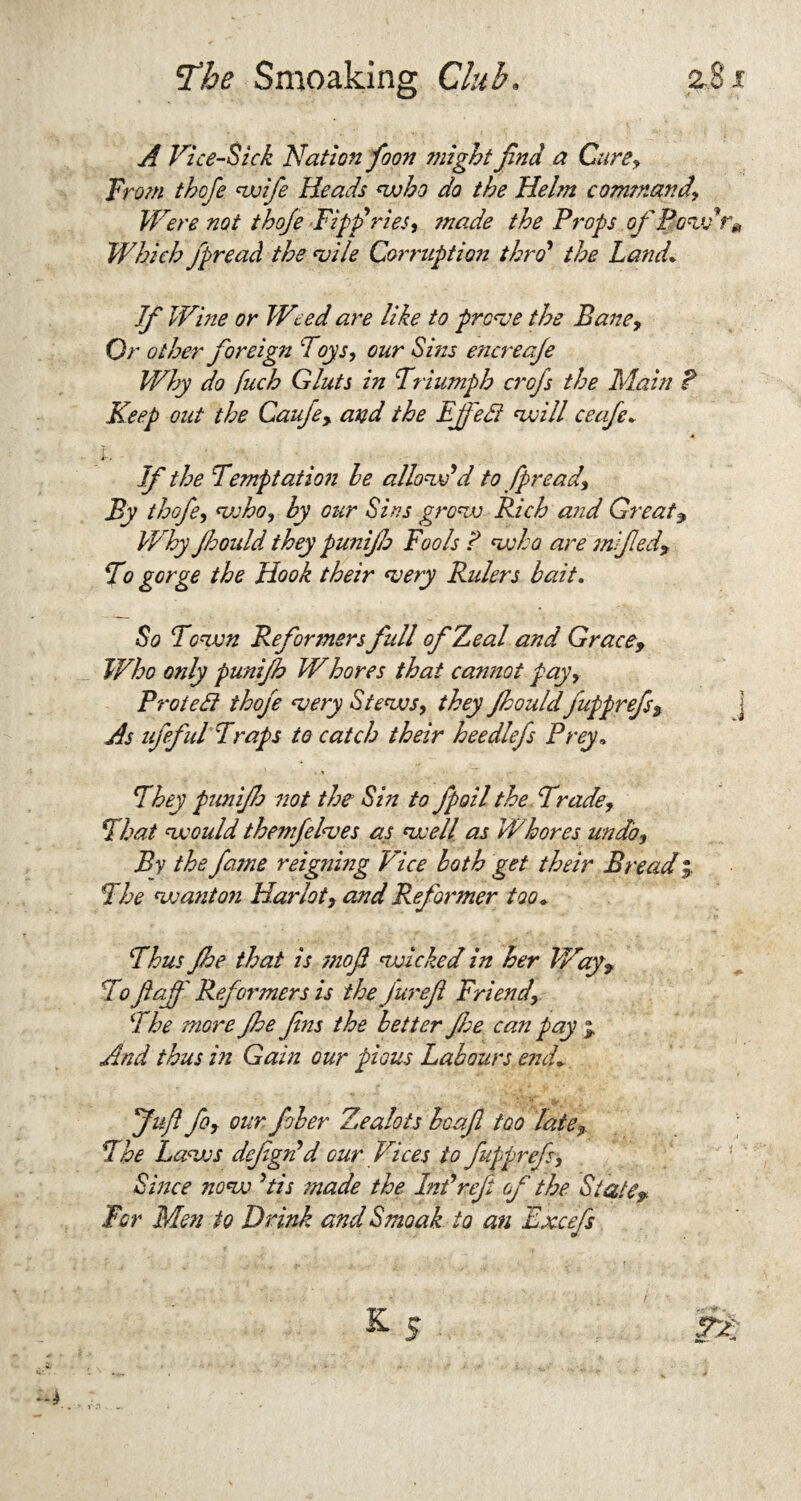 The Smoaking Club. 281
A Vice-Sick Nation ſoon might find a Cure,
From thoſe wiſe Heads who do the Helm command,
Were not thoſe Fipp'ries, made the Props of Pow'r,
Which ſpread the vile Corruption thro' the Land.
If Wine or Weed are like to prove the Bane,
Or other foreign Toys, our Sins encreaſe
Why do ſuch Gluts in Triumph croſs the Main?
Keep out the Cauſe, and the Effect will ceaſe.
If the Temptation be allow'd to ſpread,
By thoſe, who, by our Sins grow Rich and Great,
Why ſhould they puniſh Fools? who are miſled,
To gorge the Hook their very Rulers bait.
So Town Reformers full of Zeal and Grace,
Who only puniſh Whores that cannot pay,
Protect thoſe very Stews, they ſhould ſuppreſs,
As uſeful Traps to catch their heedleſs Prey.
They puniſh not the Sin to ſpoil the Trade,
That would themſelves as well as Whores undo,
By the ſame reigning Vice both get their Bread;
The wanton Harlot, and Reformer too.
Thus ſhe that is moſt wicked in her Way,
To ſtaff Reformers is the ſureſt Friend,
The more ſhe ſins the better ſhe can pay;
And thus in Gain our pious Labours end.
Juſt ſo, our ſober Zealots boaſt too late,
The Laws deſign'd our Vices to ſuppreſs,
Since now 'tis made the Int'reſt of the State,
For Men to Drink and Smoak to an Exceſs
K 5